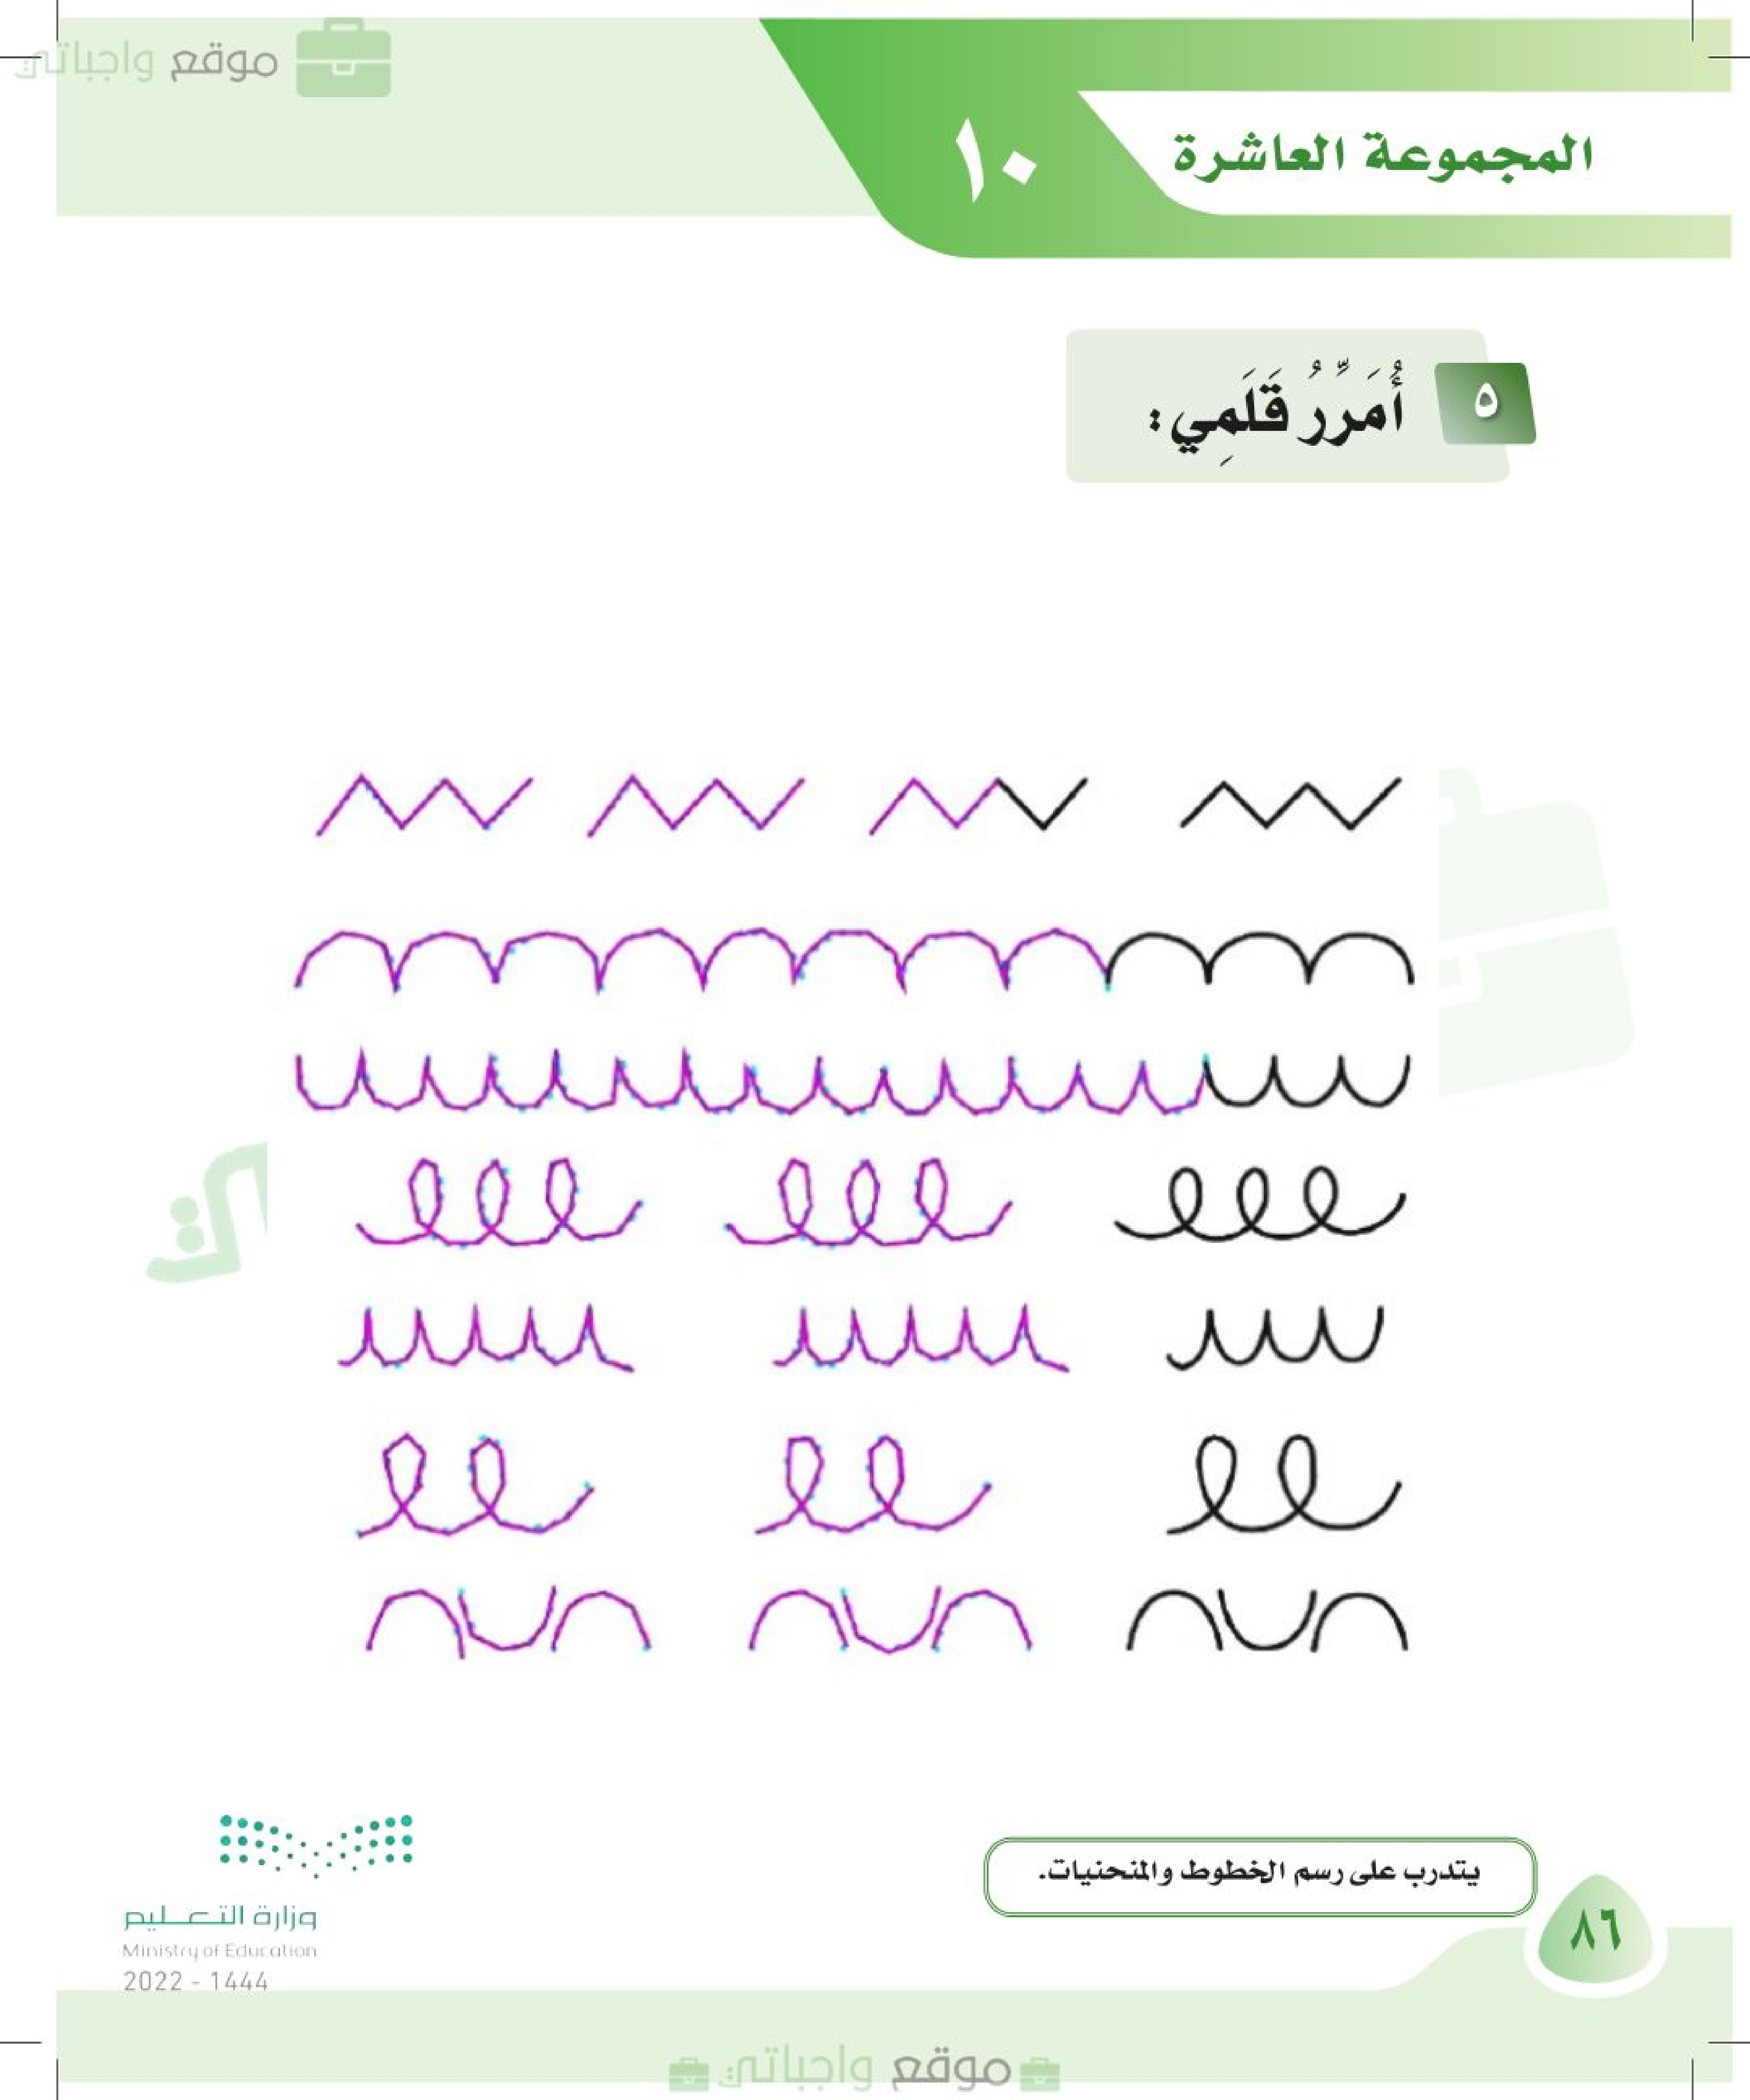 موقع واجباتي
المجموعة العاشرة
١٠
٥
أُمَرِّرُ قَلَمِي:
يتدرب على رسم الخطوط والمنحنيات.
وزارة التعليم
Ministry of Education
2022 - 1444
٨٦
موقع واجباتي